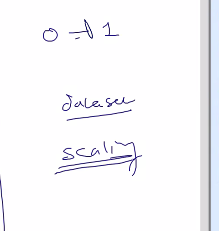 0 → 1
dataset
scaling